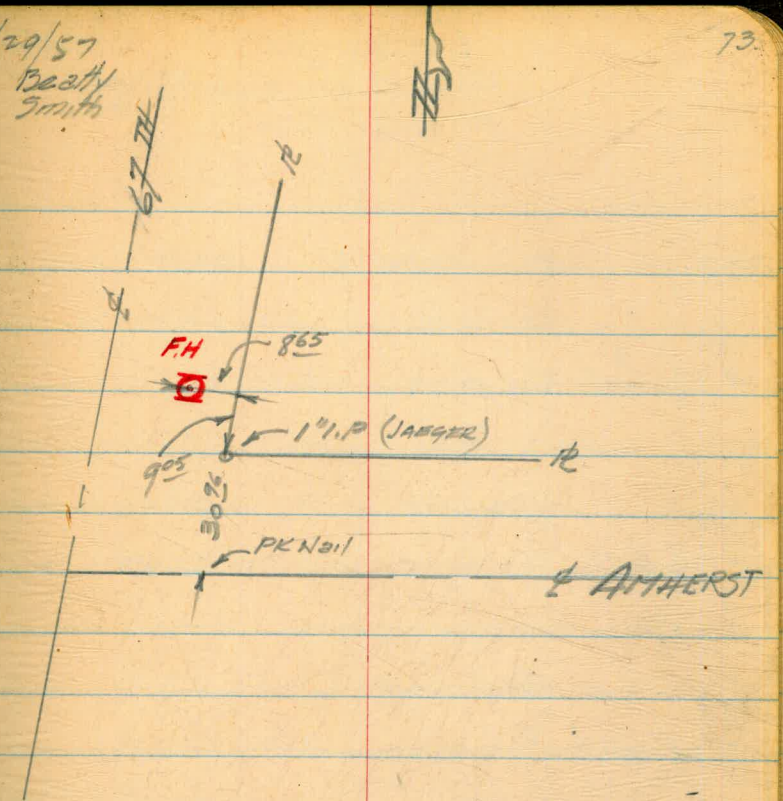 /29/57
73
Beatty
Smith
67 TH
N
℄
F.H
8 65
1" I.P (JAEGER)
9 05
30 96
PK Nail
℄ AMHERST